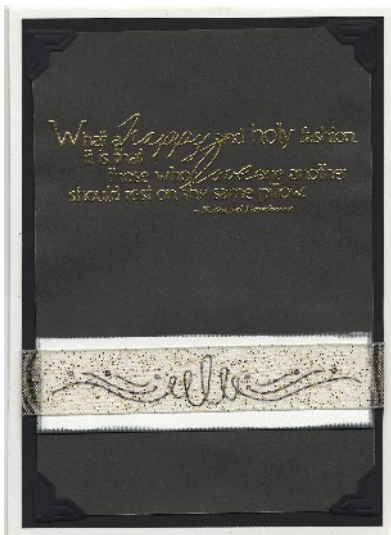 What a happy and holy fashion
it is that
those who love one another
should rest on the same pillow.
- Nathaniel Hawthorne